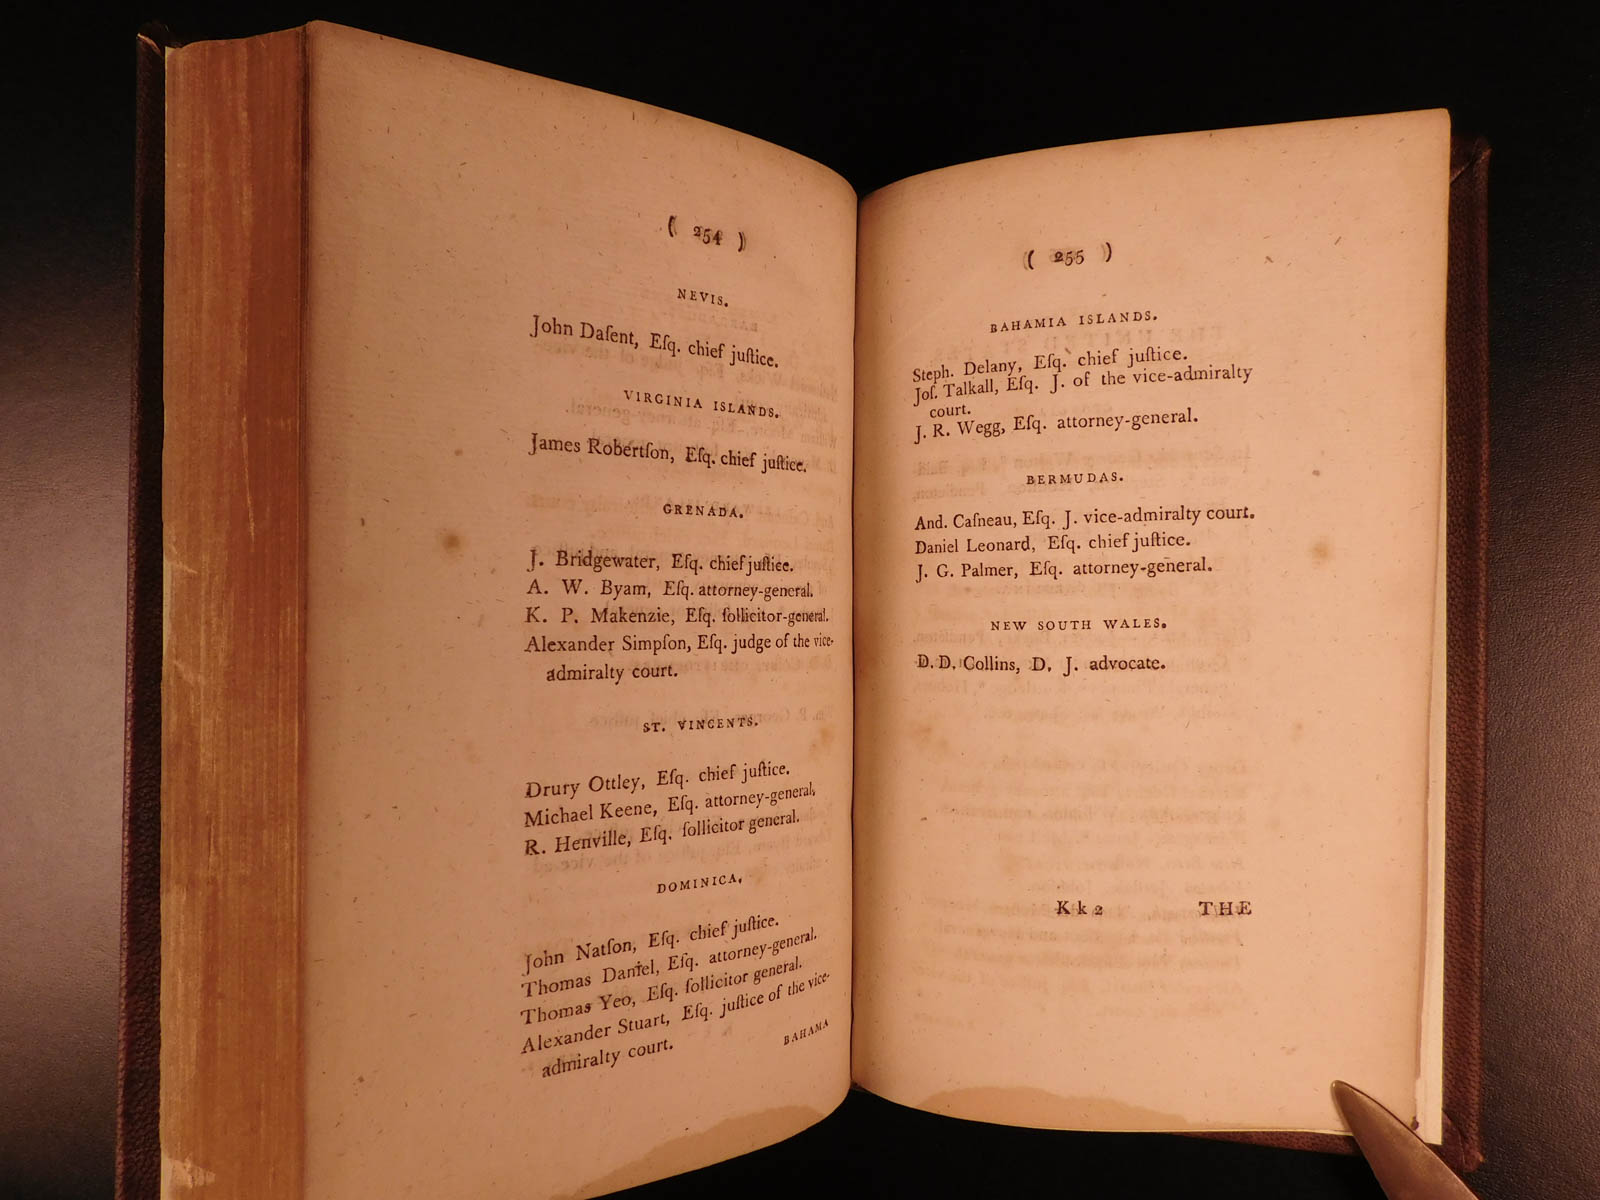 ( 254 )
NEVIS.
John Daſent, Eſq. chief juſtice.
VIRGINIA ISLANDS.
James Robertſon, Eſq. chief juſtice.
GRENADA.
J. Bridgewater, Eſq. chief juſtice.
A. W. Byam, Eſq. attorney-general.
K. P. Makenzie, Eſq. ſollicitor-general.
Alexander Simpſon, Eſq. judge of the vice-
admiralty court.
ST. VINCENTS.
Drury Ottley, Eſq. chief juſtice.
Michael Keene, Eſq. attorney-general,
R. Henville, Eſq. ſollicitor general.
DOMINICA.
John Natſon, Eſq. chief juſtice.
Thomas Daniel, Eſq. attorney-general.
Thomas Yeo, Eſq. ſollicitor general.
Alexander Stuart, Eſq. juſtice of the vice-
admiralty court.
BAHAMA
( 255 )
BAHAMIA ISLANDS.
Steph. Delany, Eſq. chief juſtice.
Joſ. Talkall, Eſq. J. of the vice-admiralty
court.
J. R. Wegg, Eſq. attorney-general.
BERMUDAS.
And. Caſneau, Eſq. J. vice-admiralty court.
Daniel Leonard, Eſq. chief juſtice.
J. G. Palmer, Eſq. attorney-general.
NEW SOUTH WALES.
D. D. Collins, D. J. advocate.
Kk2 THE